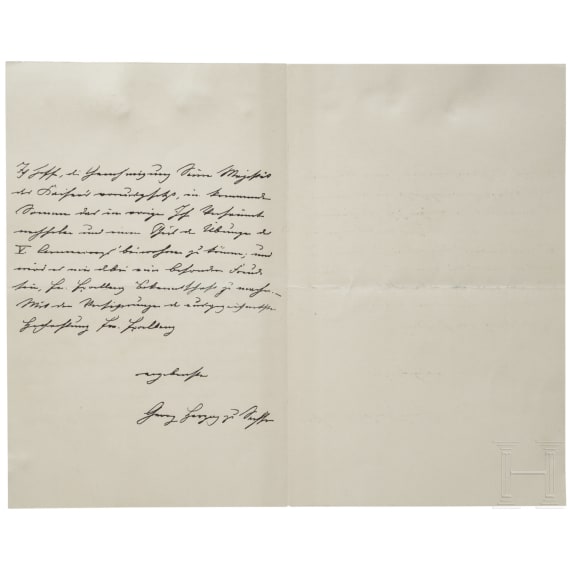 Ich hoffe, die Genehmigung Seiner Majestät
des Kaisers vorausgesetzt, im kommenden
Sommer das im vorigen Jahr Versäumte
nachholen und einem Theil der Übungen des
V. Armeecorps beiwohnen zu können; und
wird es mir dabei eine besondere Freude
sein, Ew. Excellenz Bekanntschaft zu machen.
Mit der Versicherung der ausgezeichnetsten
Hochachtung Ew. Excellenz
ergebenster
Georg Herzog zu Sachsen
H